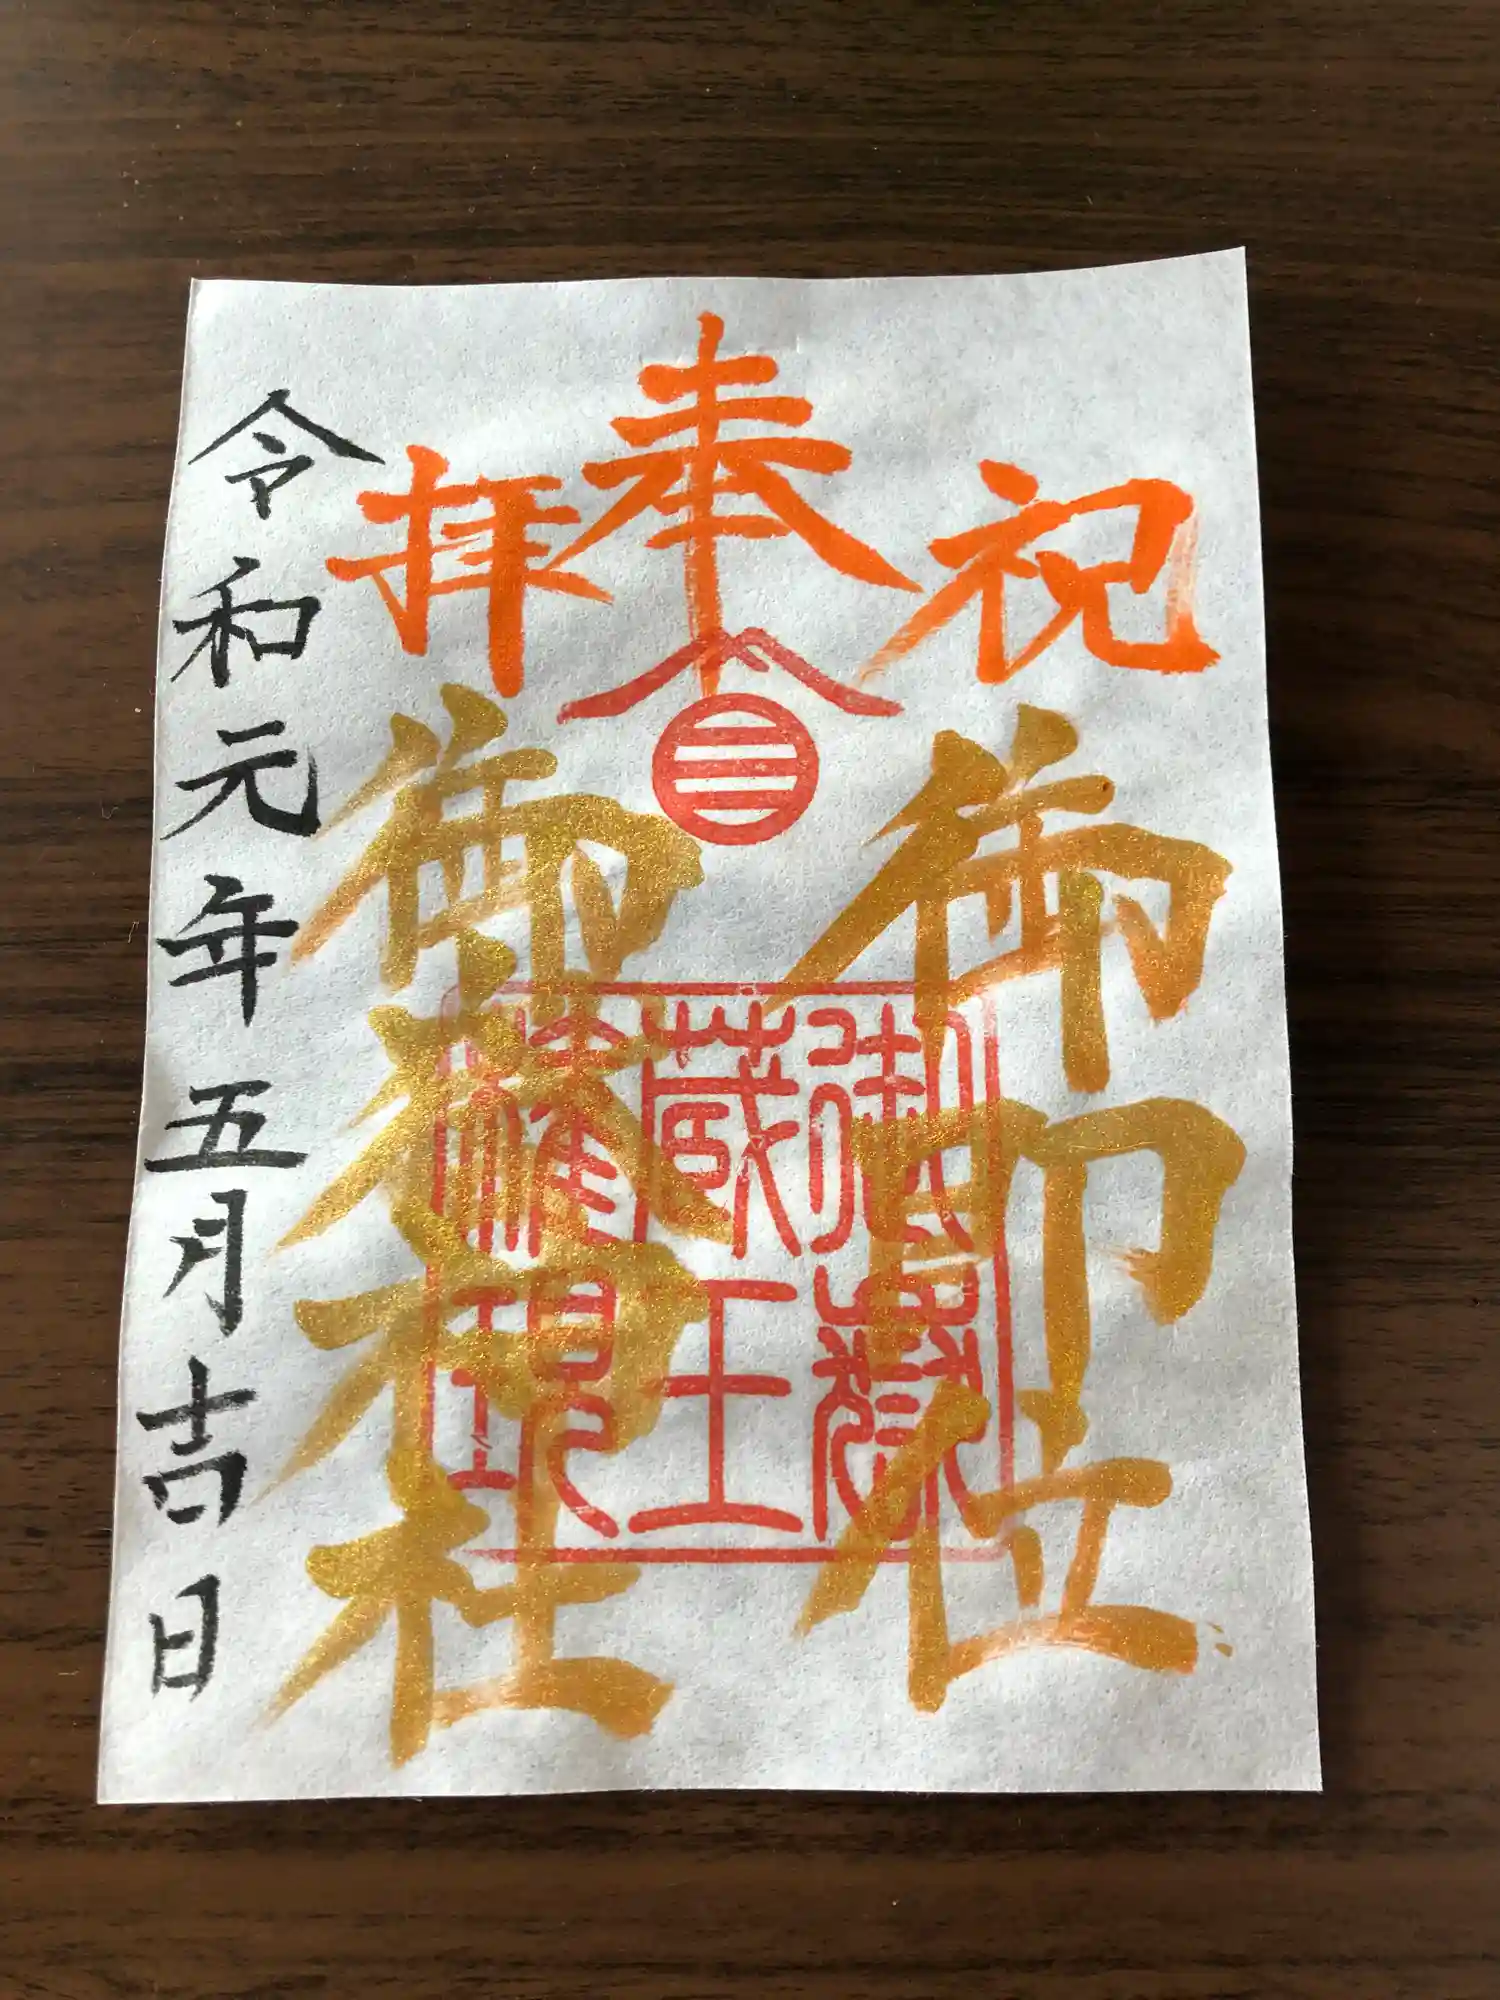 祝
御即位
奉拝
御嶽
蔵王
権現
御嶽神社
令和元年五月吉日